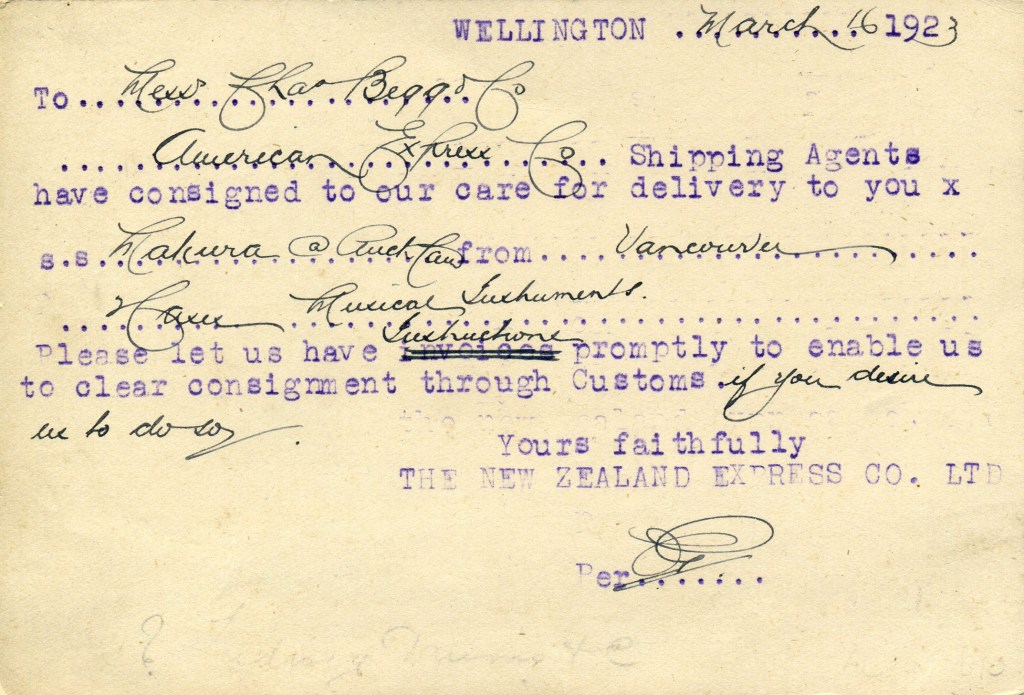 WELLINGTON . March 16 1923
To Messrs Chas Begg & Co
American Express Co. Shipping Agents
have consigned to our care for delivery to you x
s.s. Makura @ Auckland from Vancouver
Cases Musical Instruments.
Instructions
Please let us have invoices promptly to enable us
to clear consignment through Customs. if you desire
us to do so.
Yours faithfully
THE NEW ZEALAND EXPRESS CO. LTD
Per